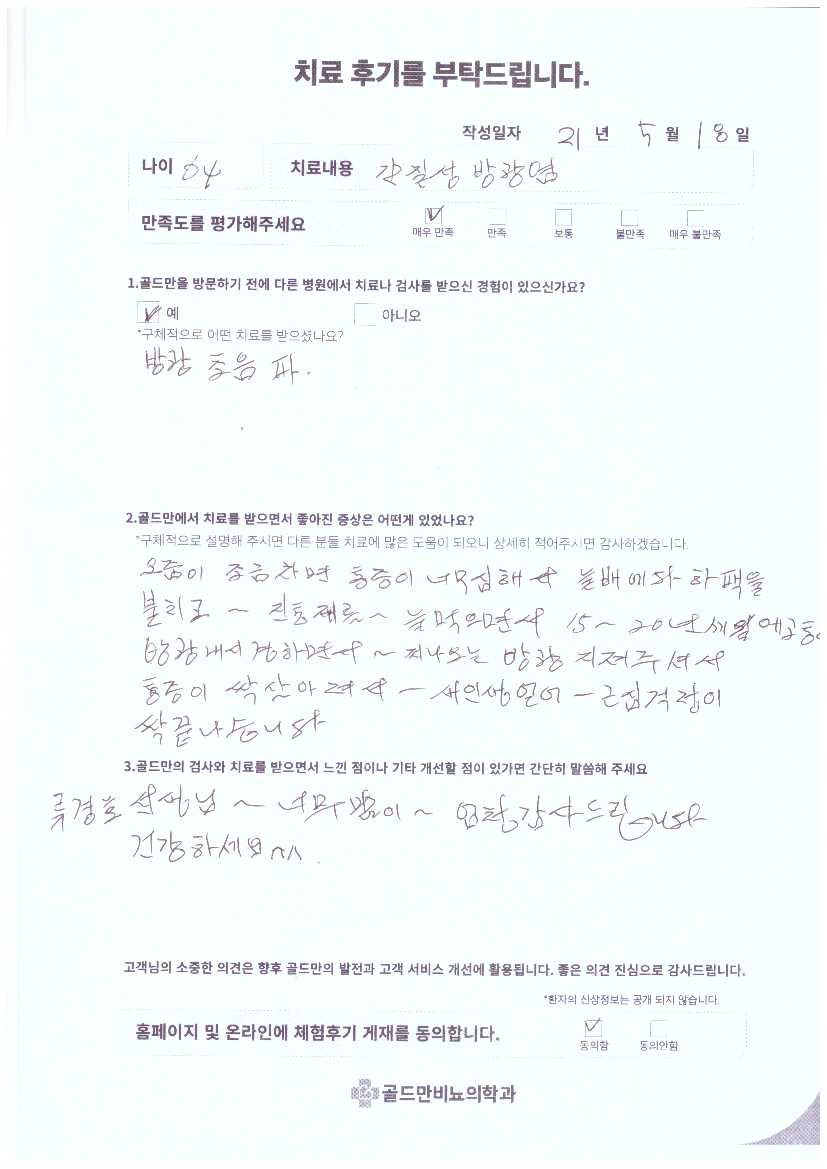 치료 후기를 부탁드립니다.
작성일자 21 년 5 월 18 일
나이 64 치료내용 간질성 방광염
만족도를 평가해주세요
매우 만족 만족 보통 불만족 매우 불만족
1.골드만을 방문하기 전에 다른 병원에서 치료나 검사를 받으신 경험이 있으신가요?
예 아니오
*구체적으로 어떤 치료를 받으셨나요?
방광 초음파.
2.골드만에서 치료를 받으면서 좋아진 증상은 어떤게 있었나요?
*구체적으로 설명해 주시면 다른 분들 치료에 많은 도움이 되오니 상세히 적어주시면 감사하겠습니다.
오줌이 조금차면 통증이 너무심해서 늘배에다 하팩을
붙치고 ~ 진통제를 ~ 늘먹으면서 15~20년세월
방광내시경하면서 ~ 방광 지져주셔서
통증이 싹살아져서 ~ 새인생 얻어
싹끝나습니다
3.골드만의 검사와 치료를 받으면서 느낀 점이나 기타 개선할 점이 있가면 간단히 말씀해 주세요
류경호 선생님 ~ 너무많이 ~ 감사드립니다
건강하세요^^.
고객님의 소중한 의견은 향후 골드만의 발전과 고객 서비스 개선에 활용됩니다. 좋은 의견 진심으로 감사드립니다.
*환자의 신상정보는 공개 되지 않습니다.
홈페이지 및 온라인에 체험후기 게재를 동의합니다.
동의함 동의안함
골드만비뇨의학과